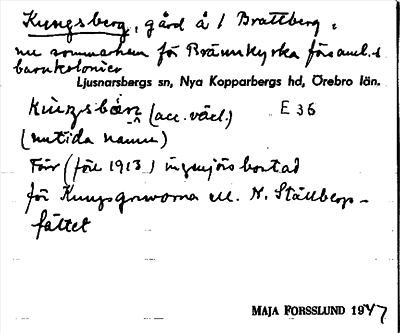 Kungsberg, gård å 1 Brattberg,
nu sommarhem för Brännkyrka församl.s
barnkolonier
Ljusnarsbergs sn, Nya Kopparbergs hd, Örebro län.
(acc. växl.) E 36
(nutida namn)
Förr (före 1913) ingenjörsbostad
för Kungsgruvorna el. N. Ställbergs-
fältet
MAJA FORSSLUND 1947